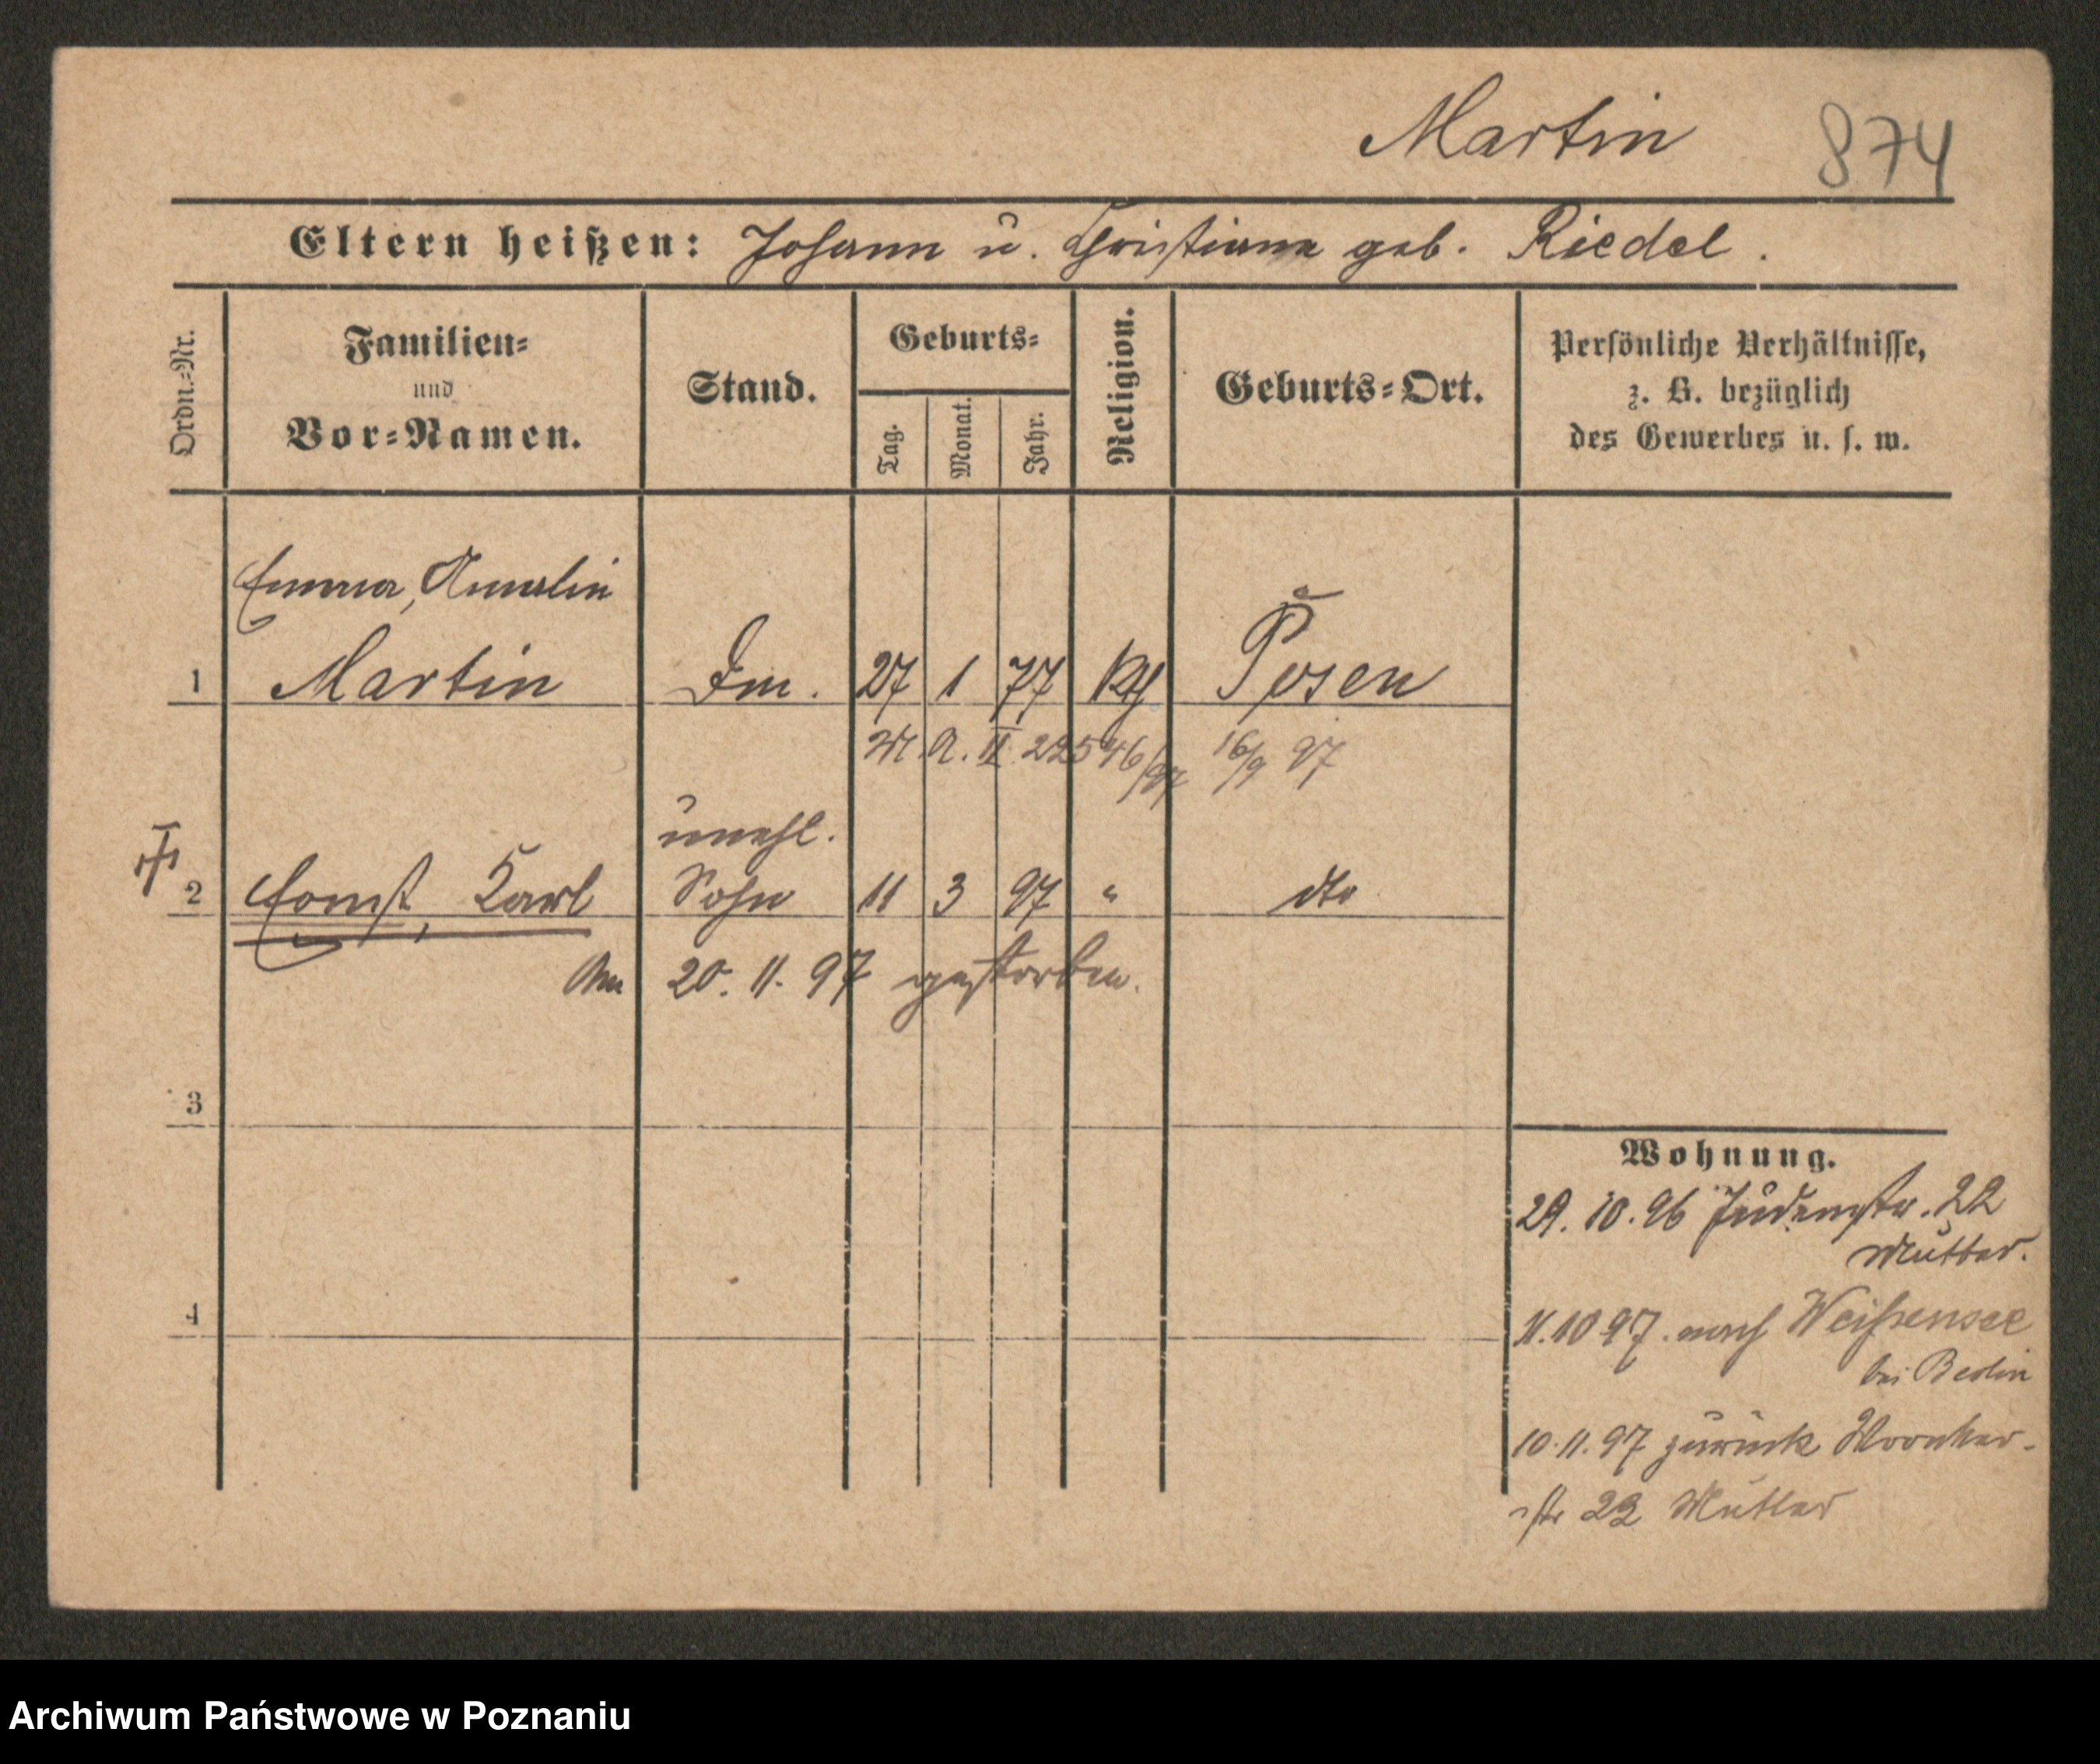 Martin 874
Eltern heißen: Johann u. Christiana geb. Riedel.
Ordn.-Nr.
Familien-
und
Vor-Namen.
Stand.
Geburts-
Tag.
Monat.
Jahr.
Religion.
Geburts-Ort.
Persönliche Verhältnisse,
z. B. bezüglich
des Gewerbes u. s. w.
Emma,
1 Martin 27 1 77 Posen
M. A. II 22546/97 16/9 97
unehl.
2 Ernst, Karl Sohn 11 3 97 " dto
Am 20. 11. 97 gestorben.
3
4
Wohnung.
29. 10. 96 Judenstr. 22
Mutter.
11. 10 97. nach Weißensee
bei Berlin
10. 11. 97 zurück Wronker-
str 23 Mutter
Archiwum Państwowe w Poznaniu